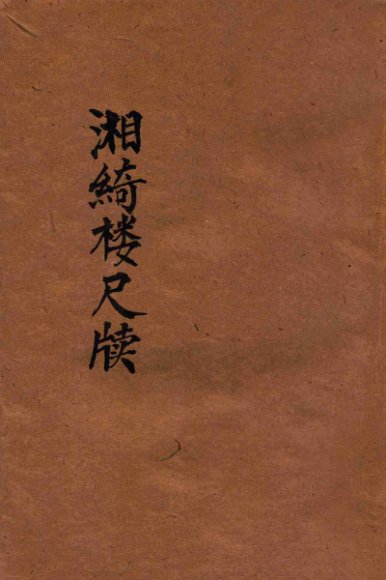 湘綺楼尺牍